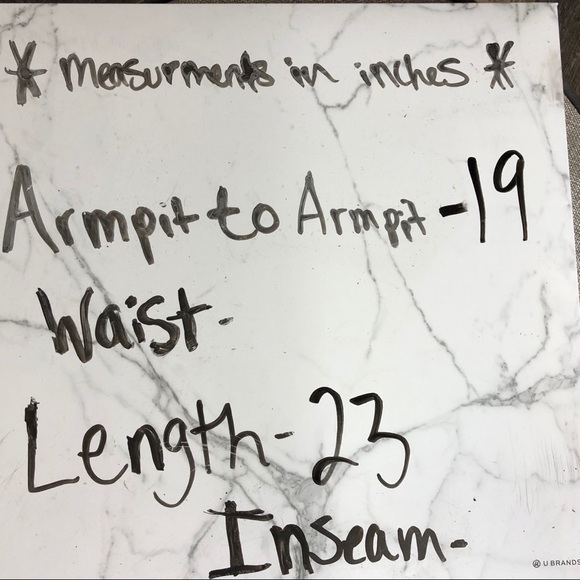 * Measurments in inches *
Armpit to Armpit - 19
Waist -
Length - 23
Inseam -
U BRANDS